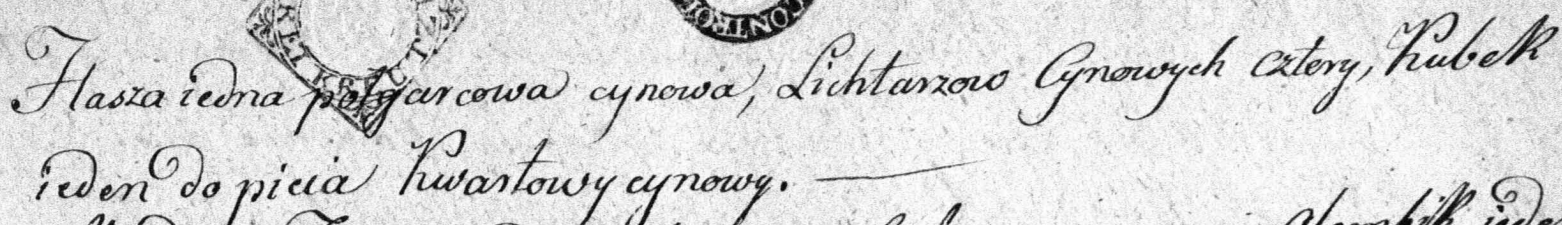 CONTROL
Flasza iedna połgarcowa cynowa, Lichtarzow Cynowych cztery, Kubek
ieden do picia Kwartowy cynowy. —